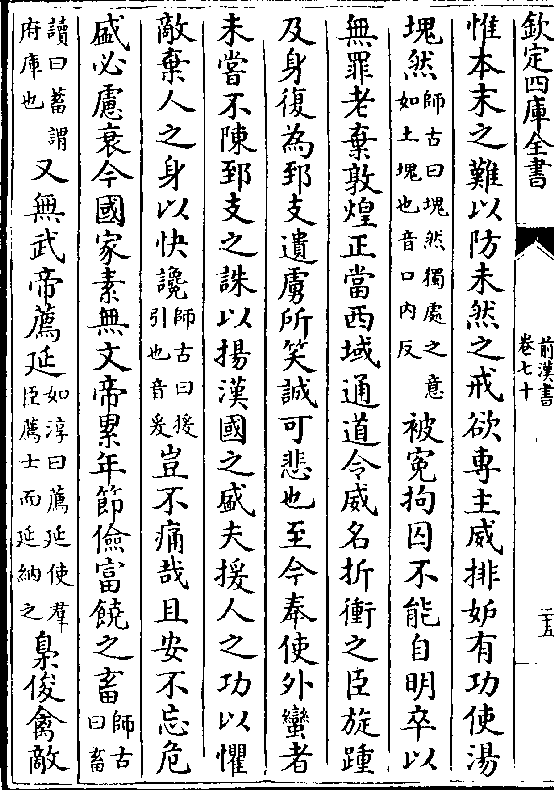 欽定四庫全書
前漢書
卷七十
二五
惟本末之難以防未然之戒欲專主威排妒有功使湯
塊然師古曰塊然獨處之意如土塊也音口内反被冤拘囚不能自明卒以
無罪老棄敦煌正當西域通道令威名折衝之臣旋踵
及身復為郅支遺虜所笑誠可悲也至今奉使外蠻者
未嘗不陳郅支之誅以揚漢國之盛夫援人之功以懼
敵棄人之身以快讒師古曰援引也音爰豈不痛哉且安不忘危
盛必慮衰今國家素無文帝累年節儉富饒之畜師古曰畜
讀曰蓄謂府庫也又無武帝薦延如淳曰薦延使羣臣薦士而延納之梟俊禽敵